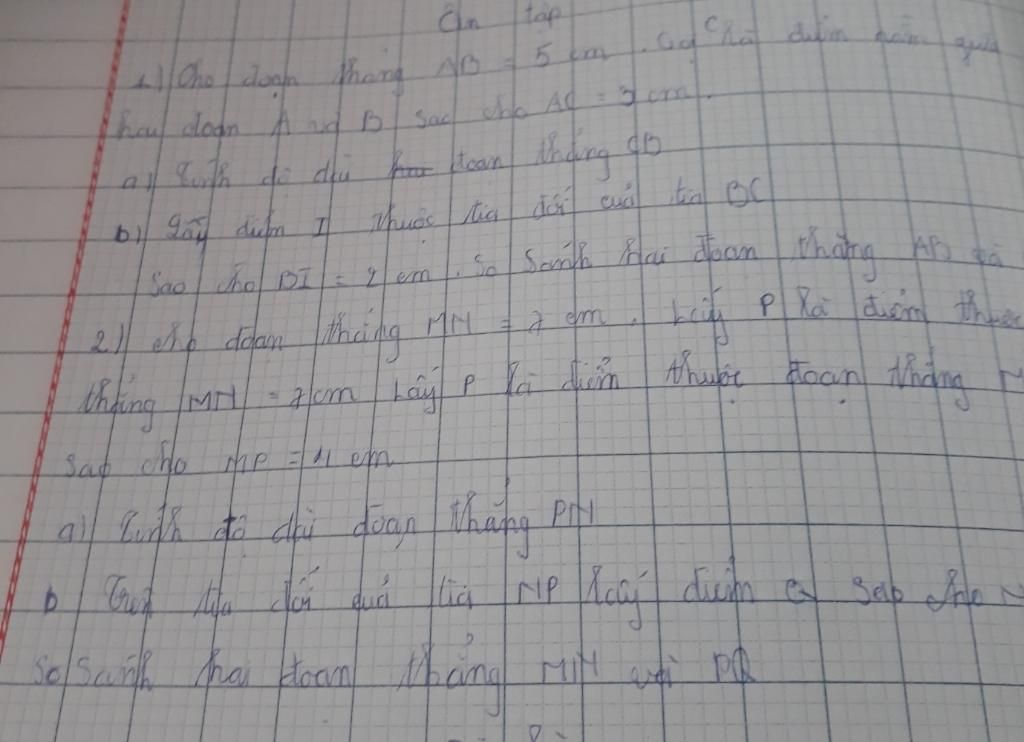 Ôn tập
1) Cho đoạn thẳng AB = 5 cm. Gọi C là điểm nằm giữa
hai đoạn A và B sao cho AC = 3 cm.
a) Tính độ dài đoan thẳng CB
b) Lấy điểm I thuộc tia đối của tia BC
Sao cho BI = 2 cm. So Sánh hai đoan thẳng AB và
2) cho đoạn thẳng MN = 7 cm. Lấy P là điểm thuộc
thẳng MN = 7 cm Lấy P là điểm thuộc đoạn thẳng
sao cho MP = 4 cm
a) Tính độ dài đoạn thẳng PN
b Trên tia đối của tia NP lấy điểm Q sao cho
So Sánh hai đoan thẳng MN với PQ